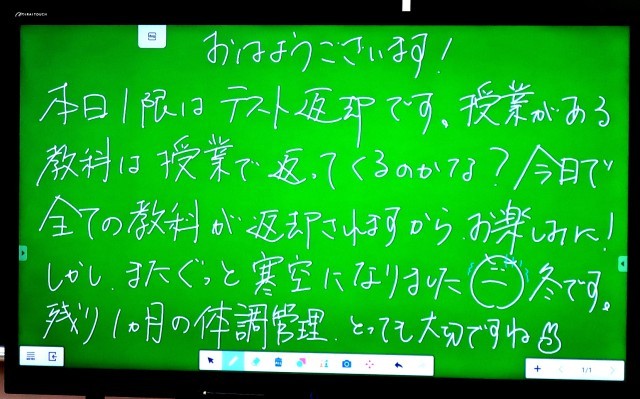 MIRAI TOUCH
おはようございます!
本日1限はテスト返却です。授業がある
教科は授業で返ってくるのかな?今日で
全ての教科が返却されますから、お楽しみに!
しかし、またぐっと寒空になりました 冬です。
残り1ヵ月の体調管理、とっても大切ですね
1/1